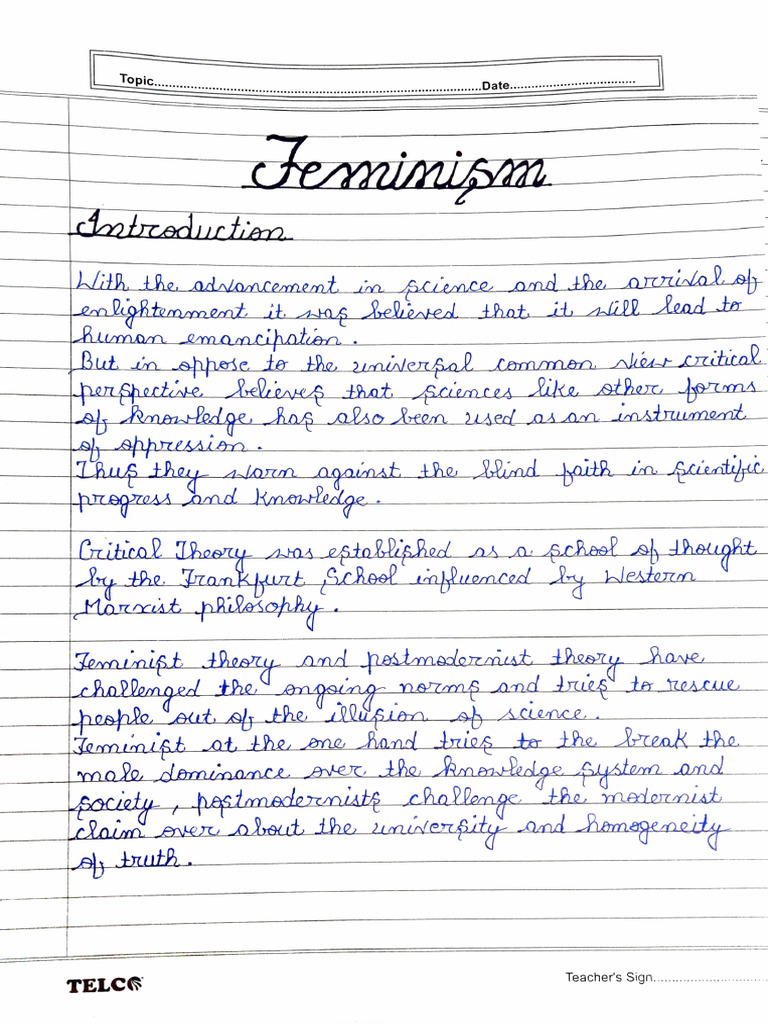 Topic................................................Date................................
Feminism
Introduction
With the advancement in science and the arrival of
enlightenment it was believed that it will lead to
human emancipation.
But in oppose to the universal common view critical
perspective believes that sciences like other forms
of knowledge has also been used as an instrument
of oppression.
Thus they warn against the blind faith in scientific
progress and knowledge.
Critical Theory was established as a school of thought
by the Frankfurt School influenced by Western
Marxist philosophy.
Feminist theory and postmodernist theory have
challenged the ongoing norms and tries to rescue
people out of the illusion of science.
Feminist at the one hand tries to the break the
male dominance over the knowledge system and
society, postmodernists challenge the modernist
claim over about the university and homogeneity
of truth.
TELCO
Teacher's Sign............................